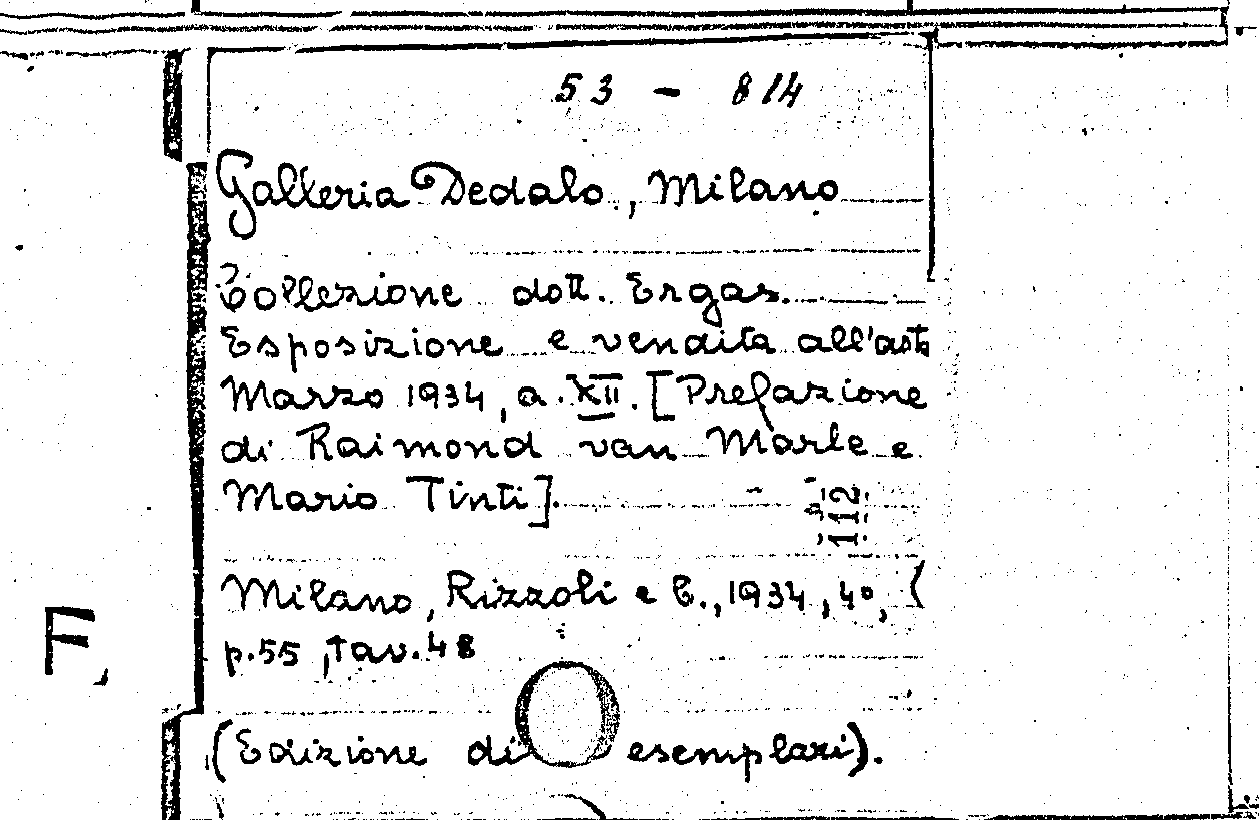 53 - 814
Galleria Dedalo, Milano
Collezione dott. Ergas.
Esposizione e vendita all'asta
Marzo 1934, a. XII. [Prefazione
di Raimond van Marle e
Mario Tinti].
112
Milano, Rizzoli e C., 1934, 4º,
p.55, tav.48
(Edizione di esemplari).
F